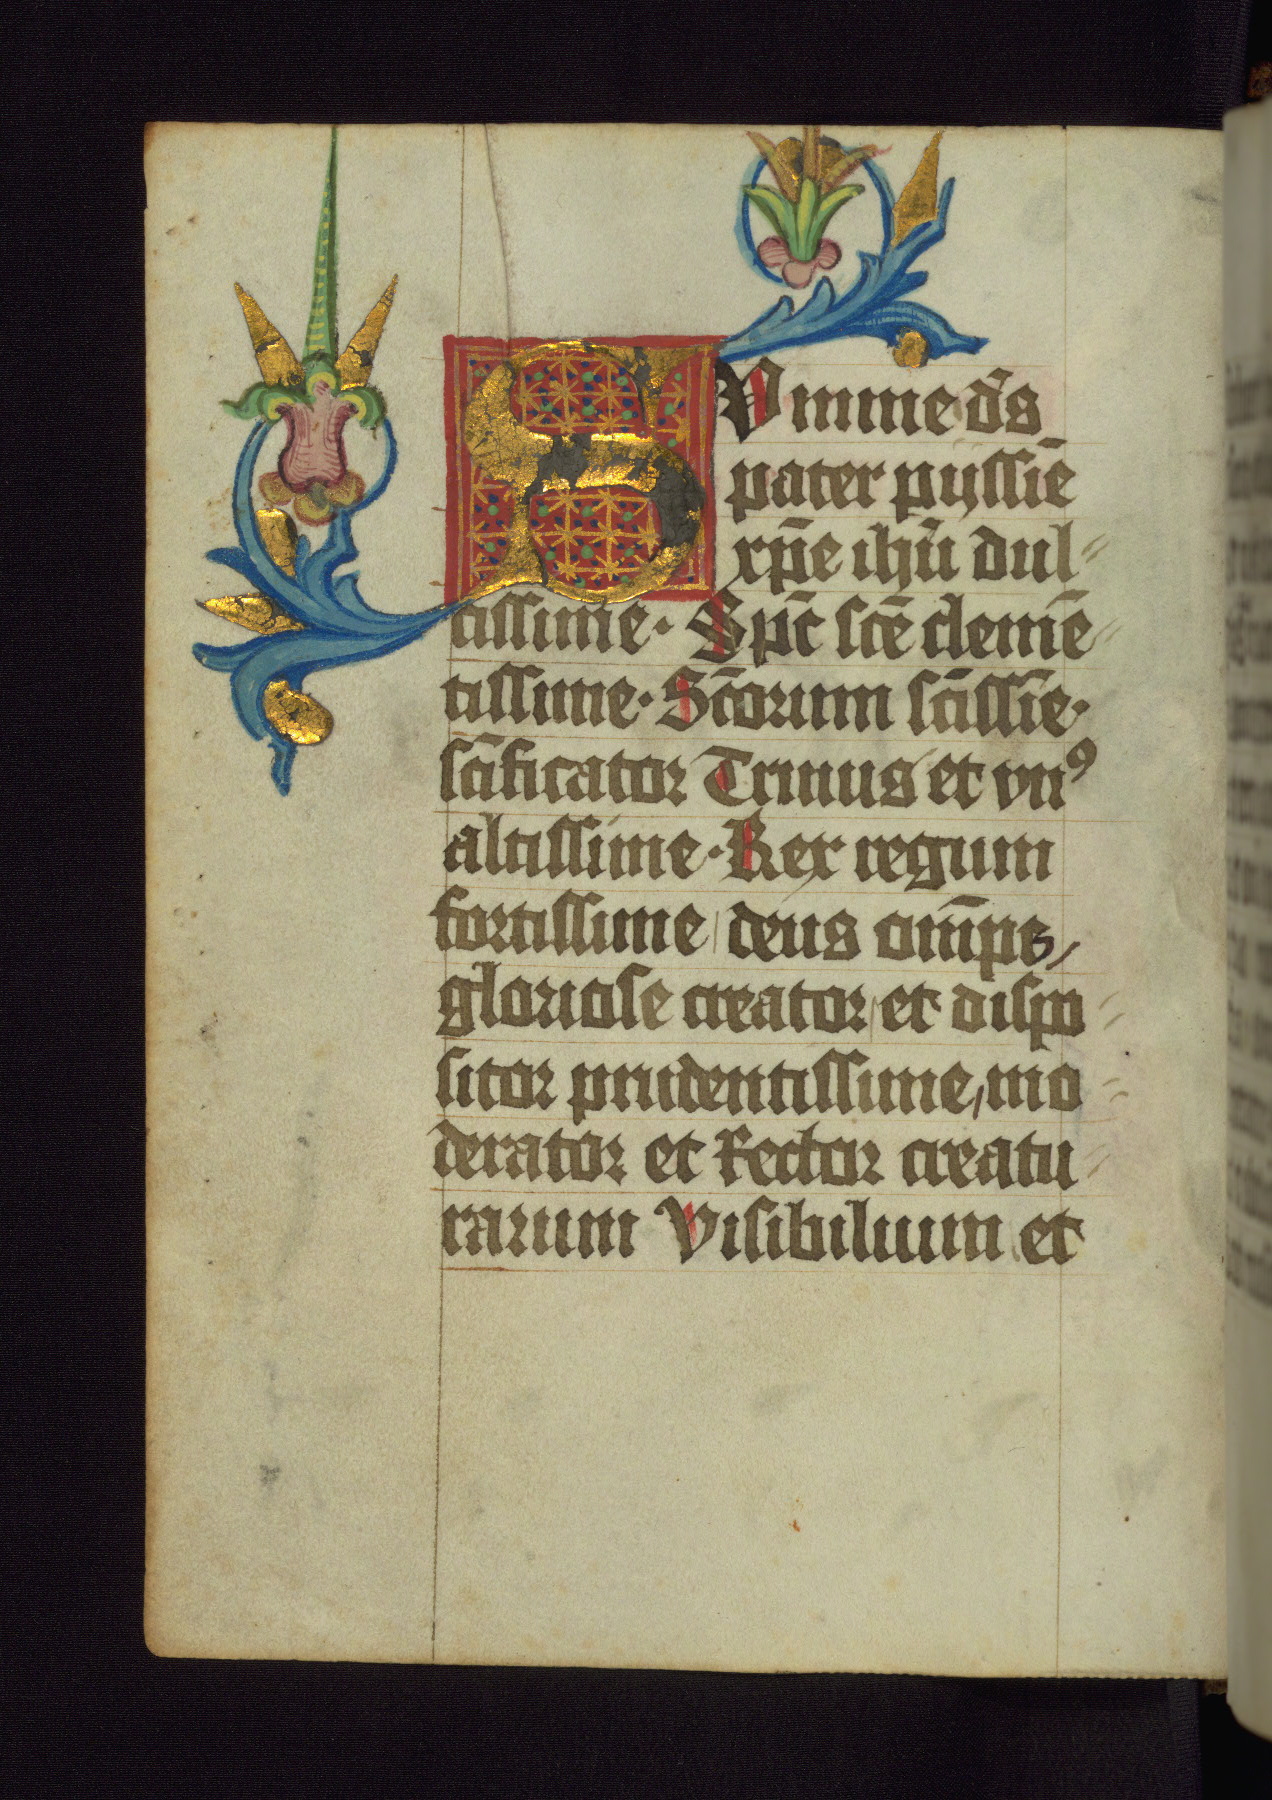 SUmme d̄s
pater pijssīe
xp̄e ihū dul-
cissime. Sp̄c sc̄e clemē-
tissime. Sc̄orum sc̄issīe.
sc̄ificator Trinus et vnꝰ
altissime. Rex regum
fortissime deus om̄ps,
gloriose creator et dispo-
sitor prudentissime, mo-
derator et Rector creatu-
rarum Visibilium et